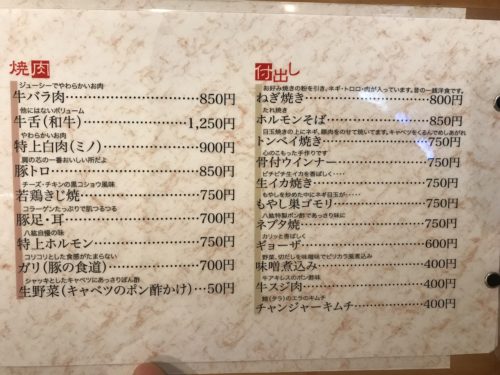 焼肉
ジューシーでやわらかいお肉
牛バラ肉……………………850円
他にはないボリューム
牛舌(和牛)………………1,250円
やわらかいお肉
特上白肉(ミノ)……………900円
肩の芯の一番おいしい所だよ
豚トロ………………………850円
チーズ・チキンの黒コショウ風味
若鶏きじ焼…………………750円
コラーゲンたっぷりで肌つるつる
豚足・耳……………………700円
八紘自慢の味
特上ホルモン………………750円
コリコリとした食感がたまらない
ガリ(豚の食道)……………700円
シャッキとしたキャベツにあっさりぽん酢
生野菜(キャベツのポン酢かけ)…50円
付出し
お好み焼きの粉を引き、ネギ・トロロ・肉が入っています。昔の一銭洋食です。
ねぎ焼き……………………800円
たれ焼き
ホルモンそば………………850円
目玉焼きの上にネギ、豚肉をのせて焼いてます。キャベツをくるんでめしあがれ
トンペイ焼き………………750円
心のこもった手作りです
骨付ウインナー……………750円
ピチピチ生イカを香ばしく‥‥
生イカ焼き…………………750円
もやしを炒めた中にネギ目玉が‥‥
もやし巣ゴモリ……………750円
八紘特製ポン酢であっさり味に
ネブタ焼……………………750円
カリッと香ばしく
ギョーザ……………………600円
野菜、切だしを味噌味でピリカラ風煮込み
味噌煮込み…………………400円
牛アキレスのポン酢味
牛スジ肉……………………400円
鱈(タラ)のエラのキムチ
チャンジャーキムチ………400円